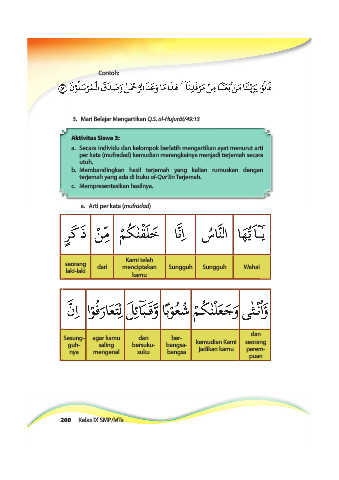 Contoh:
قَالُوْا يٰوَيْلَنَا مَنْۢ بَعَثَنَا مِنْ مَّرْقَدِنَا ۜ هٰذَا مَا وَعَدَ الرَّحْمٰنُ وَصَدَقَ الْمُرْسَلُوْنَ
3. Mari Belajar Mengartikan Q.S. al-Hujurāt/49:13
Aktivitas Siswa 3:
a. Secara individu dan kelompok berlatih mengartikan ayat menurut arti
per kata (mufradad) kemudian merangkainya menjadi terjemah secara
utuh.
b. Membandingkan hasil terjemah yang kalian rumuskan dengan
terjemah yang ada di buku al-Qur'ān Terjemah.
c. Mempresentasikan hasilnya.
a. Arti per kata (mufradad)
يٰٓاَيُّهَا النَّاسُ اِنَّا خَلَقْنٰكُمْ مِّنْ ذَكَرٍ
seorang laki-laki dari Kami telah menciptakan kamu Sungguh Sungguh Wahai
وَّاُنْثٰى وَجَعَلْنٰكُمْ شُعُوْبًا وَّقَبَاۤىِٕلَ لِتَعَارَفُوْا اِنَّ
Sesung-guh-nya agar kamu saling mengenal dan bersuku-suku ber-bangsa-bangsa kemudian Kami jadikan kamu dan seorang perem-puan
260 Kelas IX SMP/MTs